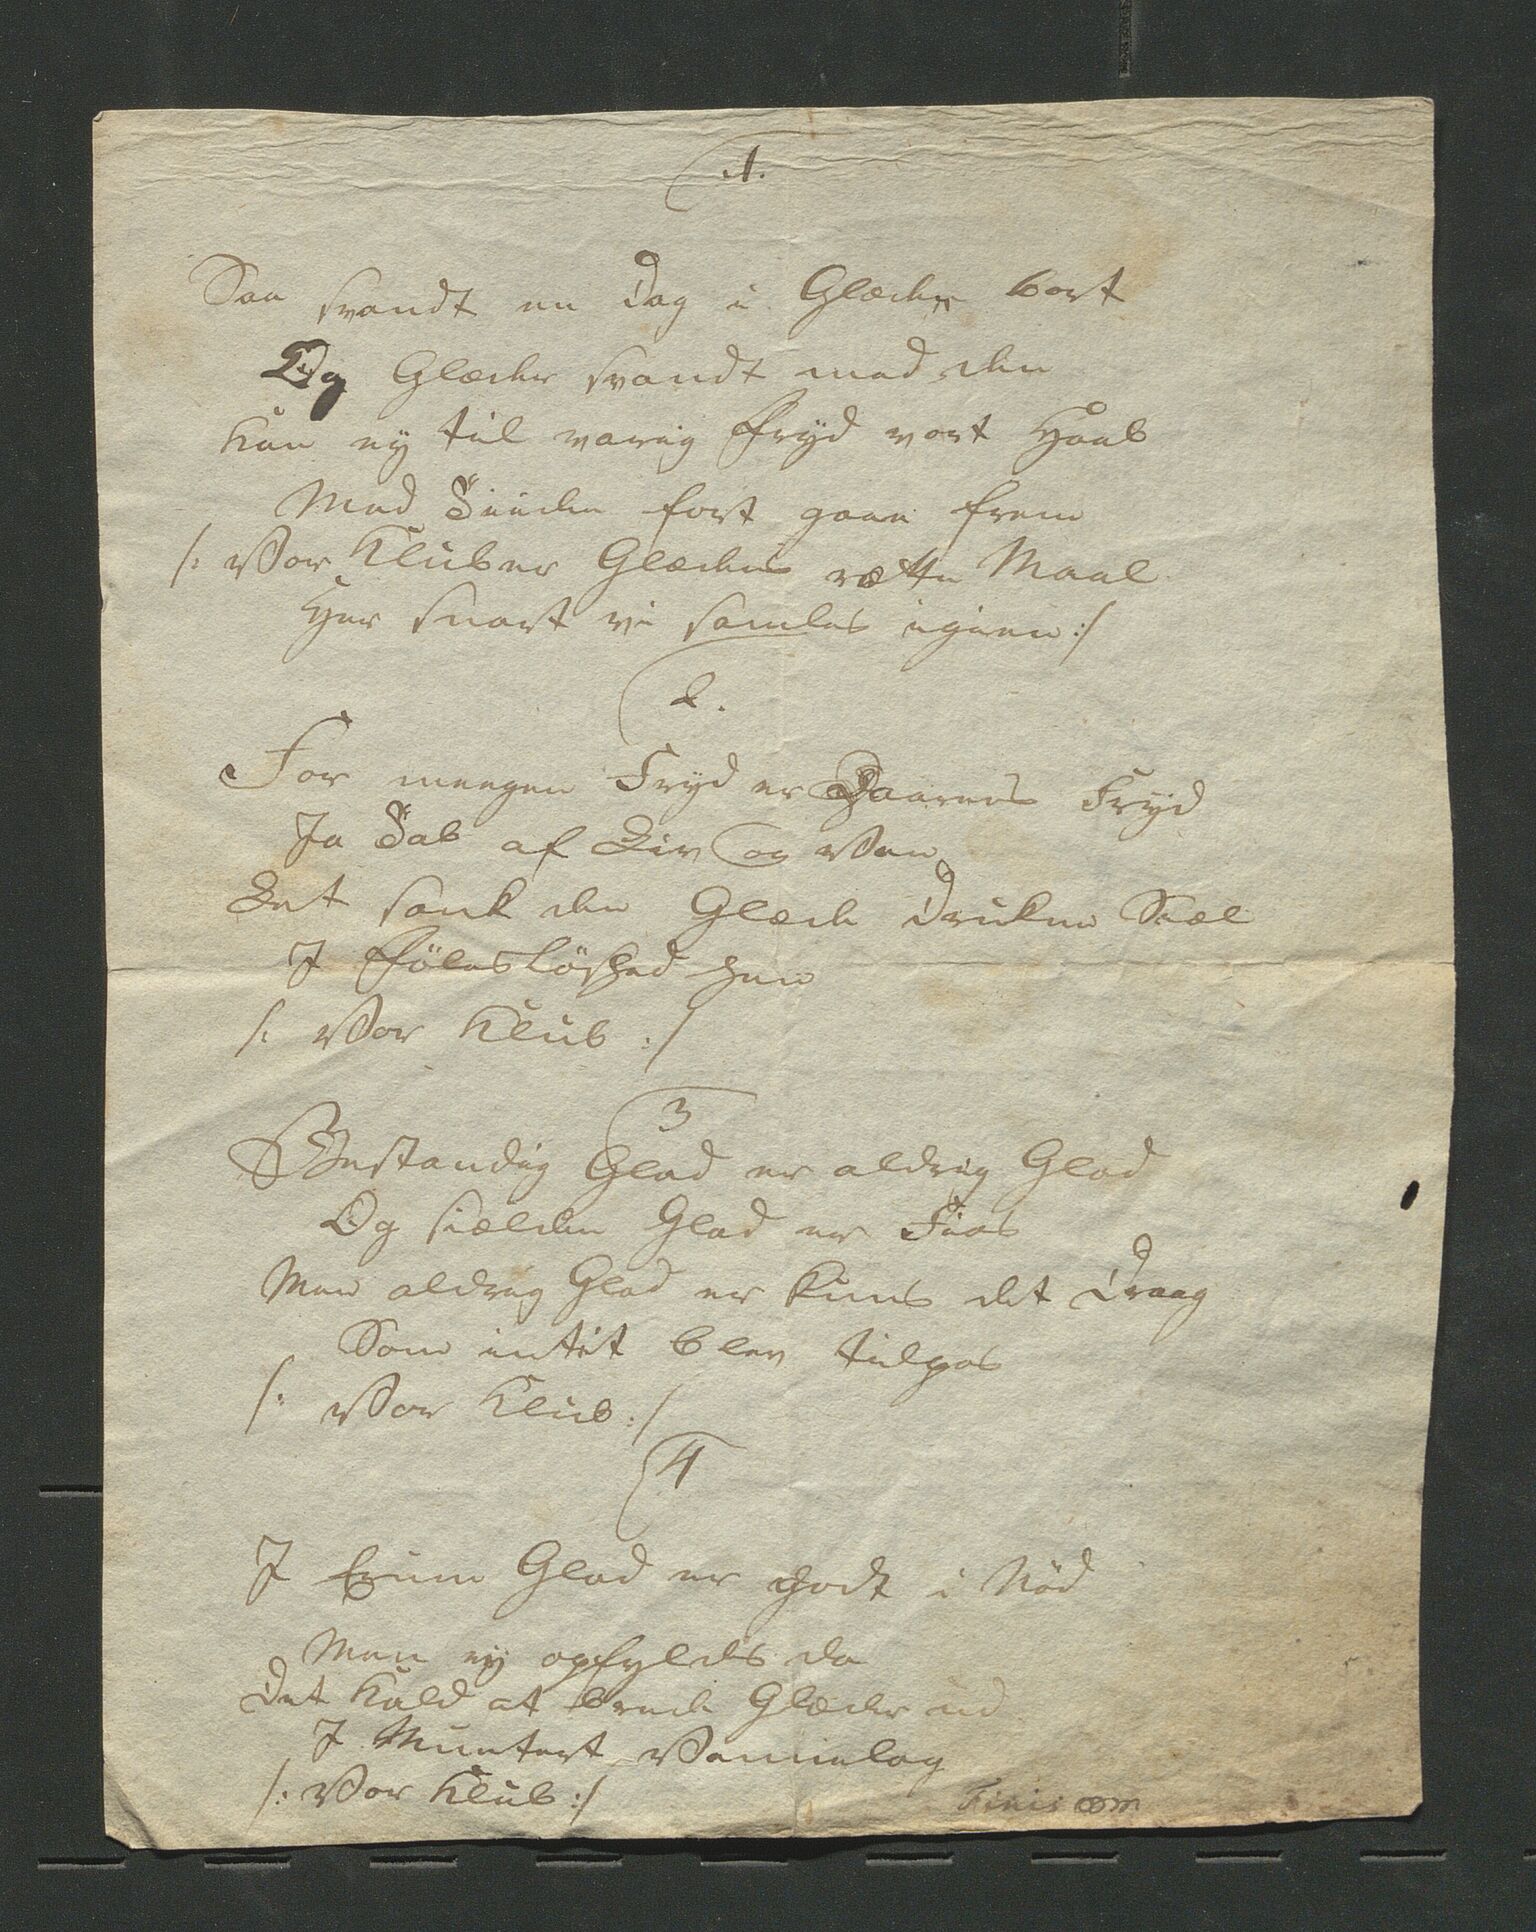 1.
Saa svandt en Dag i Glæder bort
Og Glæder svandt med den
Kun ey til varig Fryd vort Haab
Med Tiiden fort gaae frem
/: Vor Klub er Glædens rette Maal
Her snart vi samles igien :/
2.
For meegen Fryd er Daarens Fryd
Ja Tab af Liv og Ven
Let sank den Glæde Drukne Siæl
I Føleslöshed hen
/: Vor Klub :/
3
Bestandig Glad er aldrig Glad
Og siælden Glad er Fias
Men aldrig Glad er kuns det Drog
Som intet blev tilpas
/: Vor Klub :/
4
I Glad er godt i Nöd
Men ey opfyldes da
Det Kald at brede Glæder ud
I Muntert Vennelag
/: Vor Klub :/
Finis